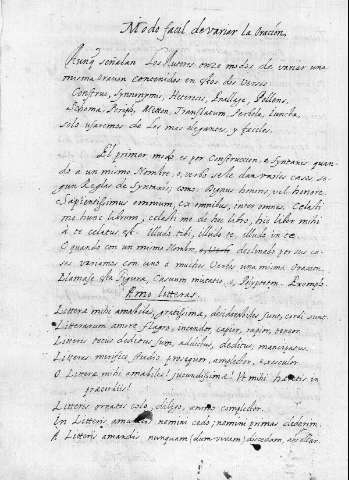 Modo facil de variar la Oracion.
Aunq señalan los Autores onze modos de variar una
misma Oracion contenidos en estos dos Versos
Constrve, Synonymis, Heterosis, Enallaje, Pollens,
Schema, Perip, Meton, Translatum, Perbola, Cuncta,
solo usaremos de los mas elegantes, y faciles.
El primer modo es por Construccion, o Syntaxis quan-
do a un mismo Nombre, o verbo se le dan varios casos se-
gun Reglas de Syntaxis, como: Dignus honoris, vel honore.
Sapientissimus omnium, ex omnibus, inter omnes. Celasti
me hunc librum, celasti me de hoc libro, hic liber mihi
a te celatus est. Illudo tibi, illudo te, illudo in te.
O quando con un mismo Nombre, declinado por sus ca-
sos variamos con uno o muchos Verbos una misma Oracion.
Llamase esta Figura, Casuum mutatio, o Polyptoton. Exemplo
Amo litteras.
Litterae mihi amabiles, gratissimae, desiderabiles sunt, cordi sunt.
Litterarum amore flagro, incendor, capior, rapior, teneor.
Litteris totus deditus sum, addictus, deditus, mancipatus.
Litteras mirifice studio prosequor, amplector, exosculor.
O Litterae mihi amabiles! jucundissimae! Ut mihi habetis in
praecordiis!
Litteris ornatis colo, diligo, animo complector.
In Litteris amandis nemini cedo; nemini primas dederim.
A Litteris amandis nunquam (dum vivam) discedam, avellar.